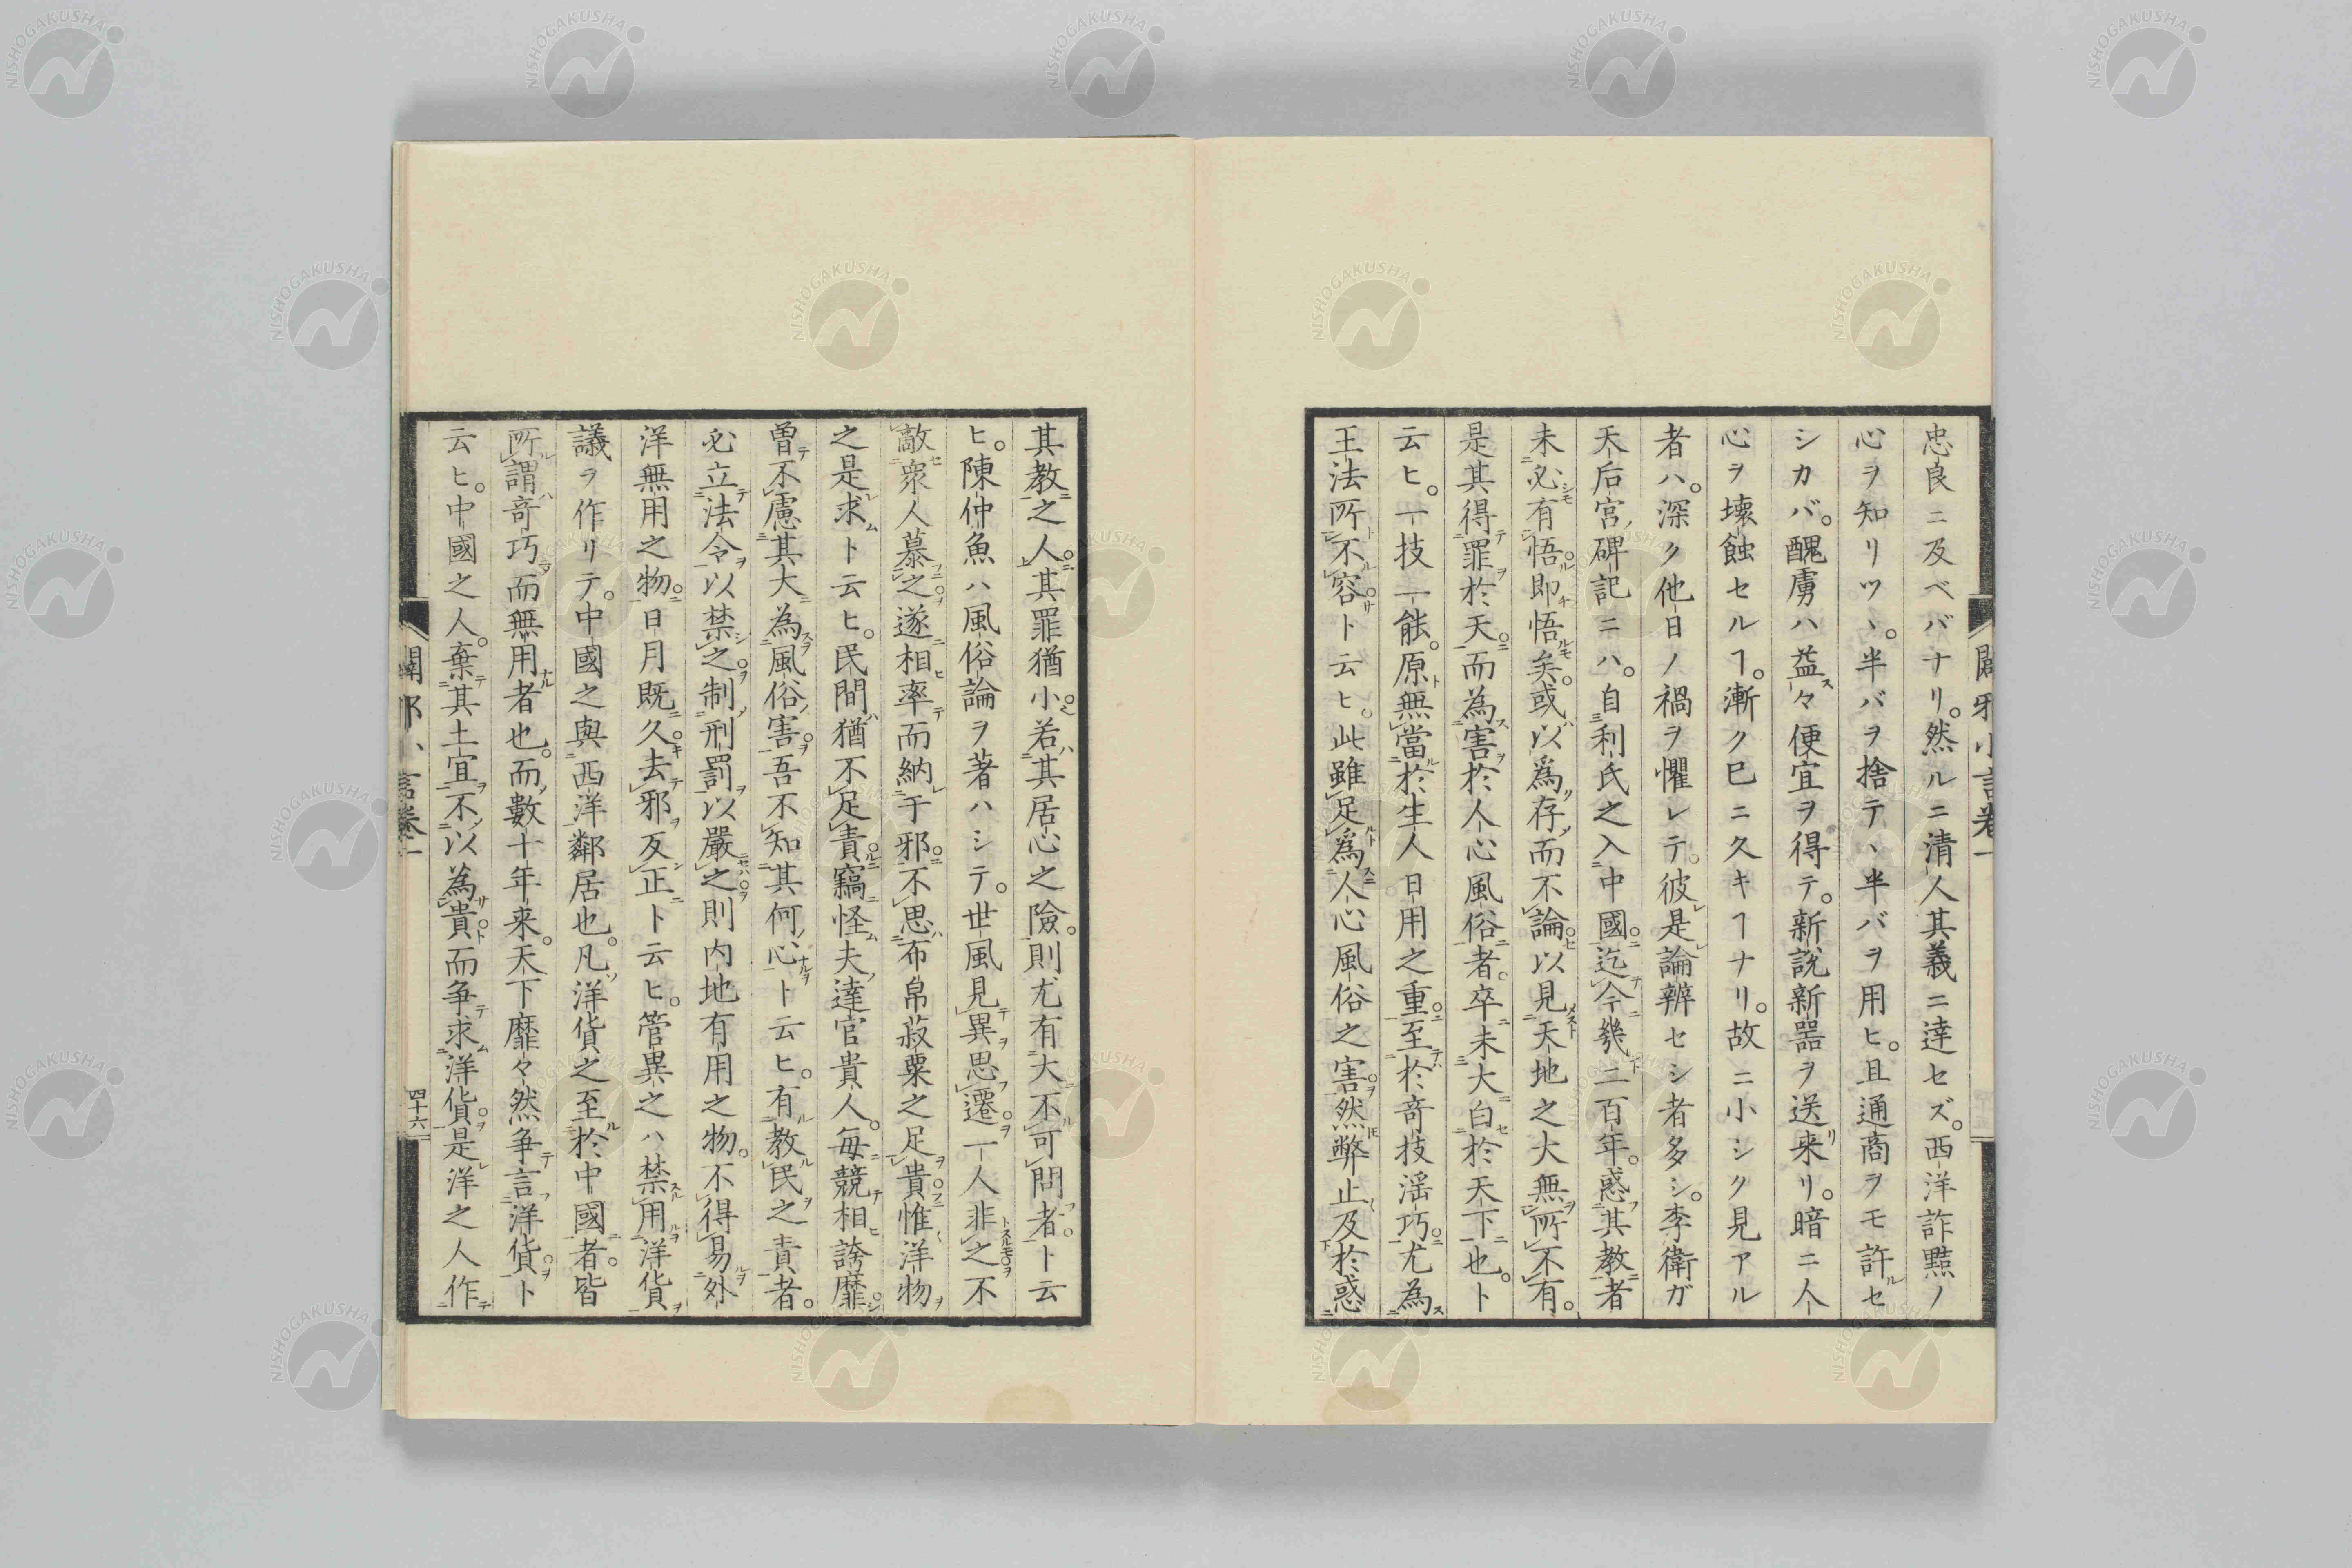 忠良ニ及ベバナリ。然ルニ清人其義ニ達セズ。西洋詐黠ノ
心ヲ知リツヽ。半バヲ捨テヽ半バヲ用ヒ。且通商ヲモ許セ
シカバ。醜虜ハ益々便宜ヲ得テ。新說新器ヲ送来リ。暗ニ人
心ヲ壞蝕セルヿ。漸ク已ニ久キヿナリ。故ニ小シク見アル
者ハ。深ク他日ノ禍ヲ懼レテ。彼是論辨セシ者多シ。李衛ガ
天后宮碑記ニハ。自利氏之入中國。迄今幾二百年。惑其教者
未必有悟即悟矣。或以為存而不論。以見天地之大無所不有。
是其得罪於天而為害於人心風俗者。卒未大白於天下也。ト
云ヒ。一技一能。原無當於生人日用之重。至於竒技淫巧。尤為
王法所不容ト云ヒ。此雖足為人心風俗之害。然弊止及於惑
其教之人。其罪猶小。若其居心之險。則尤有大不可問者。ト云
ヒ。陳仲魚ハ風俗論ヲ著ハシテ。世風見異思遷。一人非之不
敵衆人慕之。遂相率而納于邪。不思布帛菽粟之足貴。惟洋物
之是求ト云ヒ。民間猶不足責。竊怪夫達官貴人。毎競相誇靡。
曽不慮其大為風俗害。吾不知其何心ト云ヒ。有教民之責者。
必立法令以禁之。制刑罰以嚴之。則内地有用之物。不得易外
洋無用之物。日月既久。去邪反正ト云ヒ。管異之ハ禁用洋貨
議ヲ作リテ。中國之與西洋鄰居也。凡洋貨之至於中國者。皆
所謂竒巧而無用者也。而數十年来。天下靡々然争言洋貨。ト
云ヒ。中國之人。棄其土宜。不以為貴。而争求洋貨。是洋之人作
闢邪小言卷一
四十六